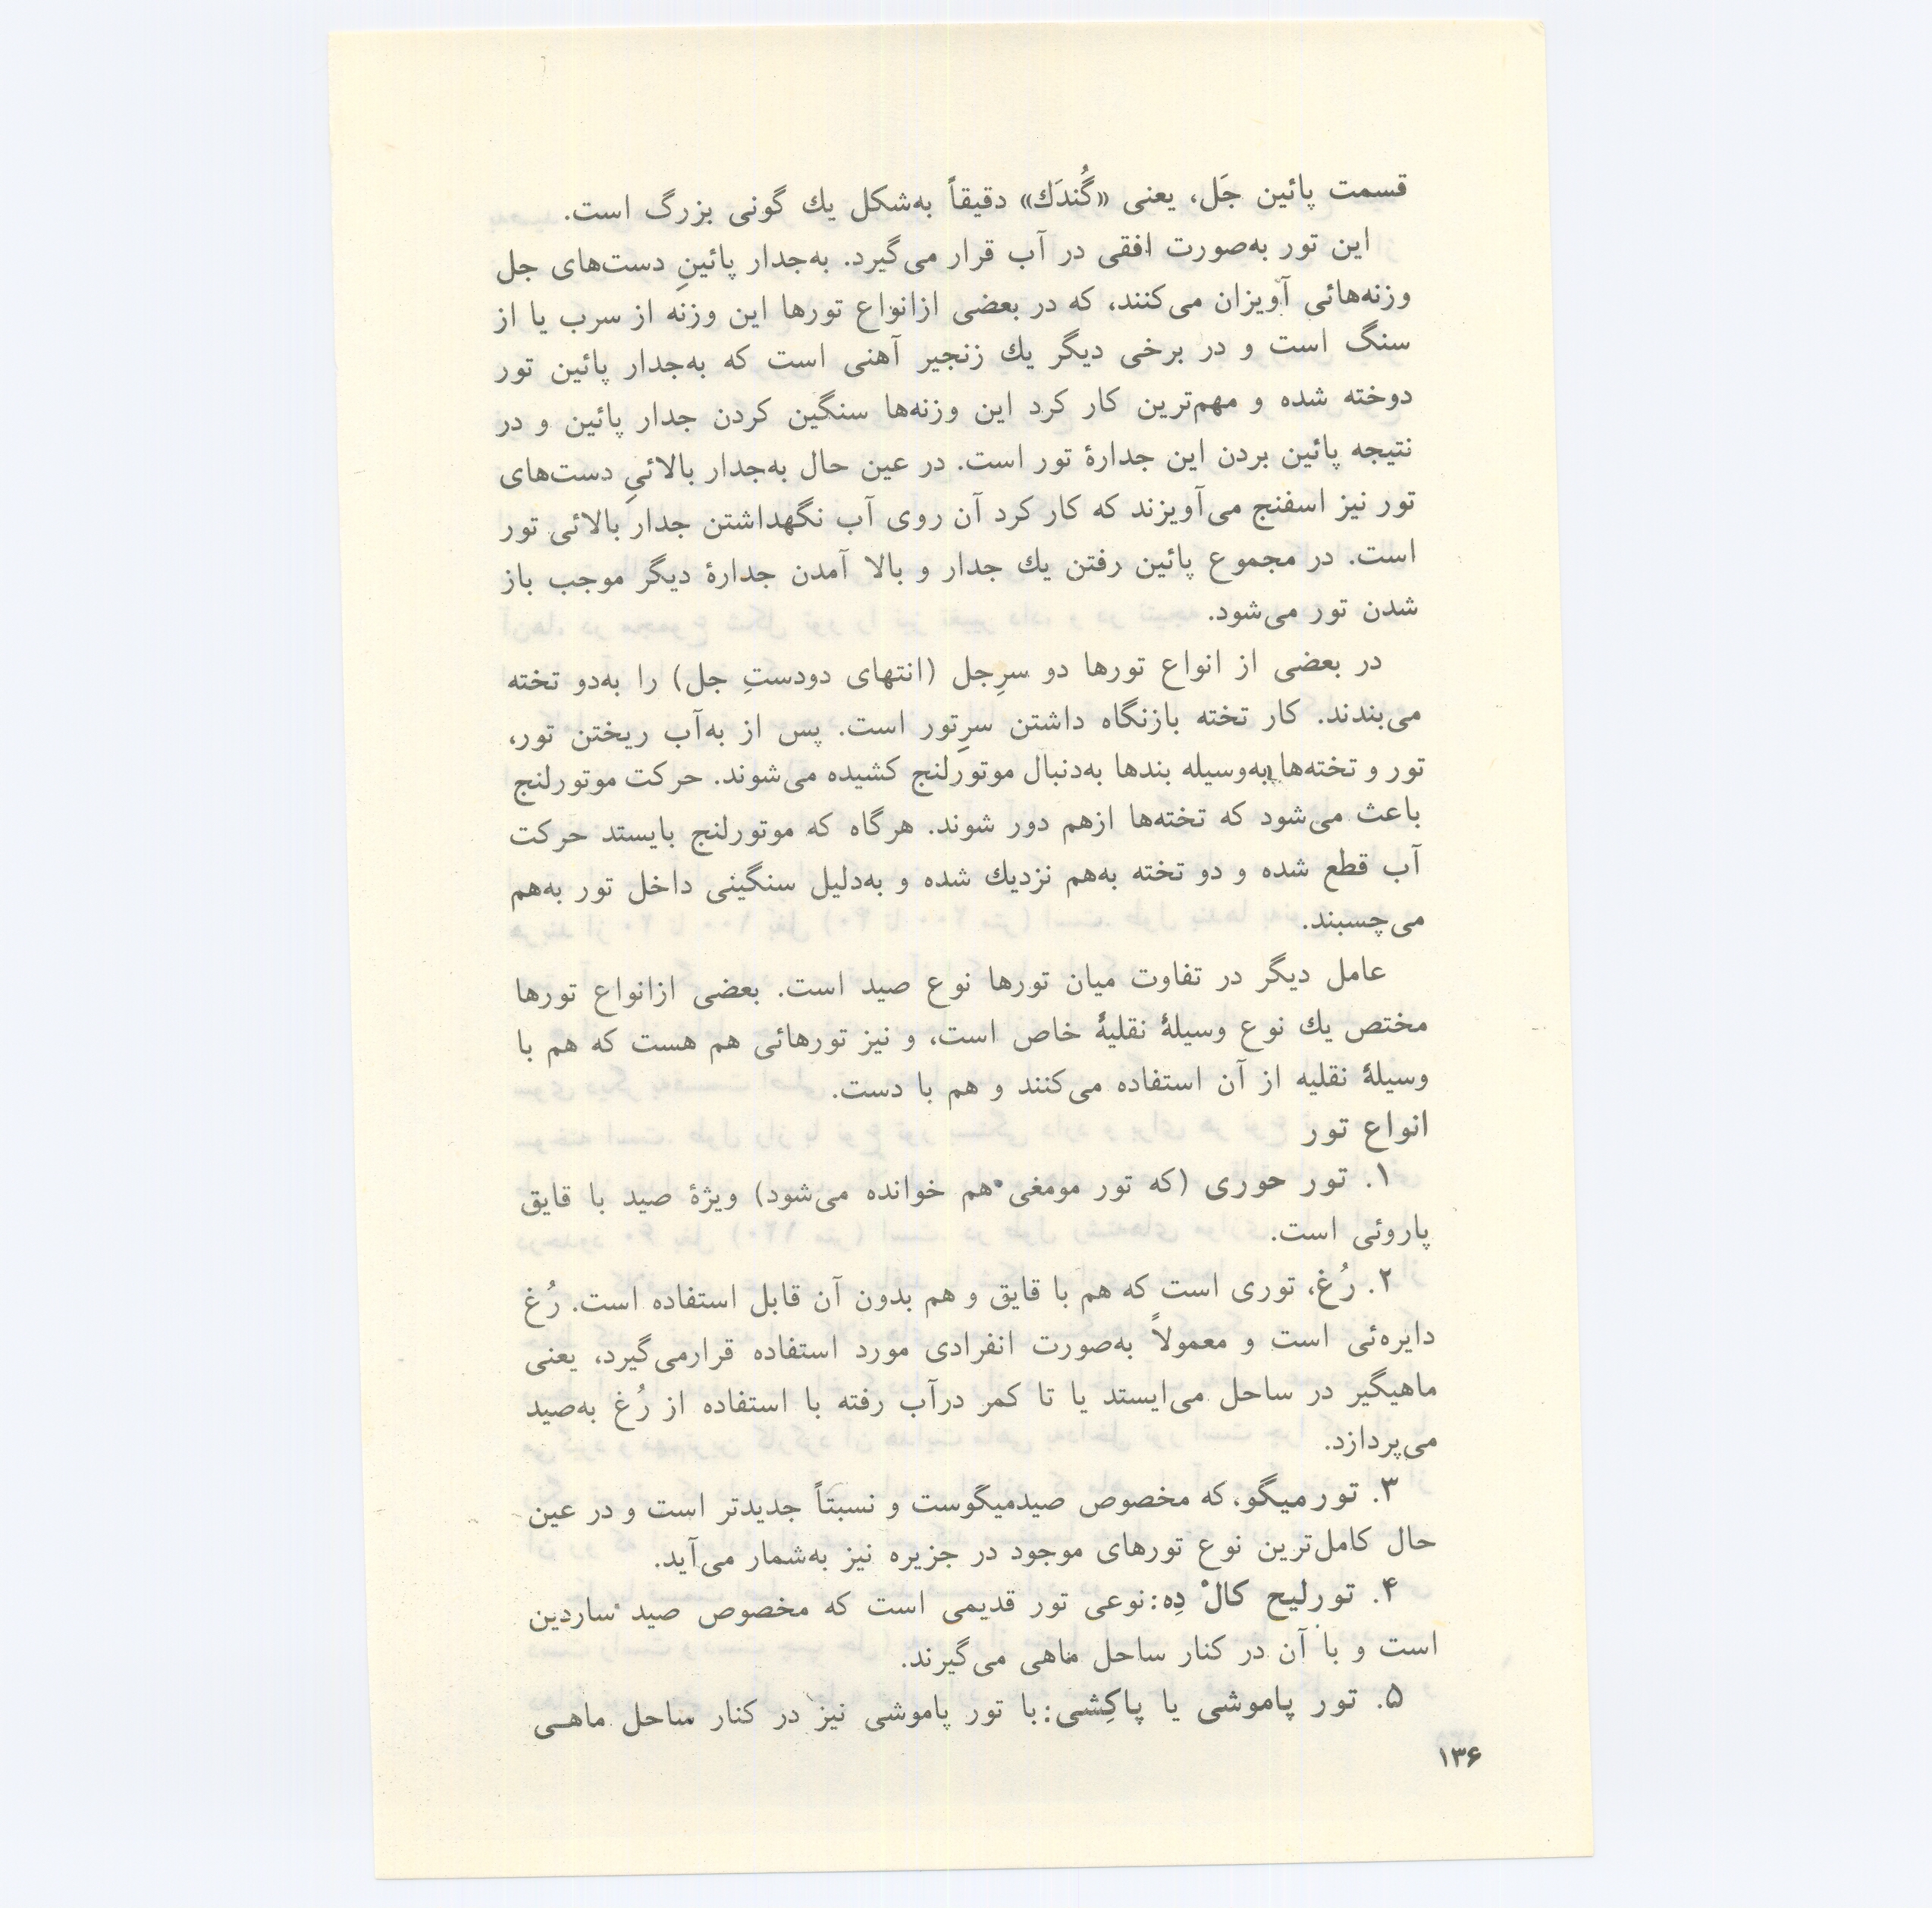 قسمت پائین جَل، یعنی «گُندَك» دقیقاً به‌شکل یك گونی بزرگ است.
این تور به‌صورت افقی در آب قرار می‌گیرد. به‌جدار پائینِ دست‌های جل
وزنه‌هائی آویزان می‌کنند، که در بعضی ازانواع تورها این وزنه از سرب یا از
سنگ است و در برخی دیگر یك زنجیر آهنی است که به‌جدار پائین تور
دوخته شده و مهم‌ترین کار کرد این وزنه‌ها سنگین کردن جدار پائین و در
نتیجه پائین بردن این جدارهٔ تور است. در عین حال به‌جدار بالائیِ دست‌های
تور نیز اسفنج می‌آویزند که کار کرد آن روی آب نگهداشتن جدار بالائی تور
است. در مجموع پائین رفتن یك جدار و بالا آمدن جدارهٔ دیگر موجب باز
شدن تور می‌شود.
در بعضی از انواع تورها دو سرِجل (انتهای دودستِ جل) را به‌دو تخته
می‌بندند. کار تخته بازنگاه داشتن سرِتور است. پس از به‌آب ریختن تور،
تور و تخته‌ها به‌وسیله بندها به‌دنبال موتورلنج کشیده می‌شوند. حرکت موتورلنج
باعث می‌شود که تخته‌ها ازهم دور شوند. هرگاه که موتورلنج بایستد حرکت
آب قطع شده و دو تخته به‌هم نزدیك شده و به‌دلیل سنگینی داخل تور به‌هم
می‌چسبند.
عامل دیگر در تفاوت میان تورها نوع صید است. بعضی ازانواع تورها
مختص یك نوع وسیلهٔ نقلیهٔ خاص است، و نیز تورهائی هم هست که هم با
وسیلهٔ نقلیه از آن استفاده می‌کنند و هم با دست.
انواع تور
۱. تور حوری (که تور مومغی هم خوانده می‌شود) ویژهٔ صید با قایق
پاروئی است.
۲. رُغ، توری است که هم با قایق و هم بدون آن قابل استفاده است. رُغ
دایره‌ئی است و معمولاً به‌صورت انفرادی مورد استفاده قرارمی‌گیرد، یعنی
ماهیگیر در ساحل می‌ایستد یا تا کمر درآب رفته با استفاده از رُغ به‌صید
می‌پردازد.
۳. تورمیگو، که مخصوص صیدمیگوست و نسبتاً جدیدتر است و در عین
حال کامل‌ترین نوع تورهای موجود در جزیره نیز به‌شمار می‌آید.
۴. تورلیح کالْ دِه: نوعی تور قدیمی است که مخصوص صید ساردین
است و با آن در کنار ساحل ماهی می‌گیرند.
۵. تور پاموشی یا پاکِشی: با تور پاموشی نیز در کنار ساحل ماهـی
۱۳۶